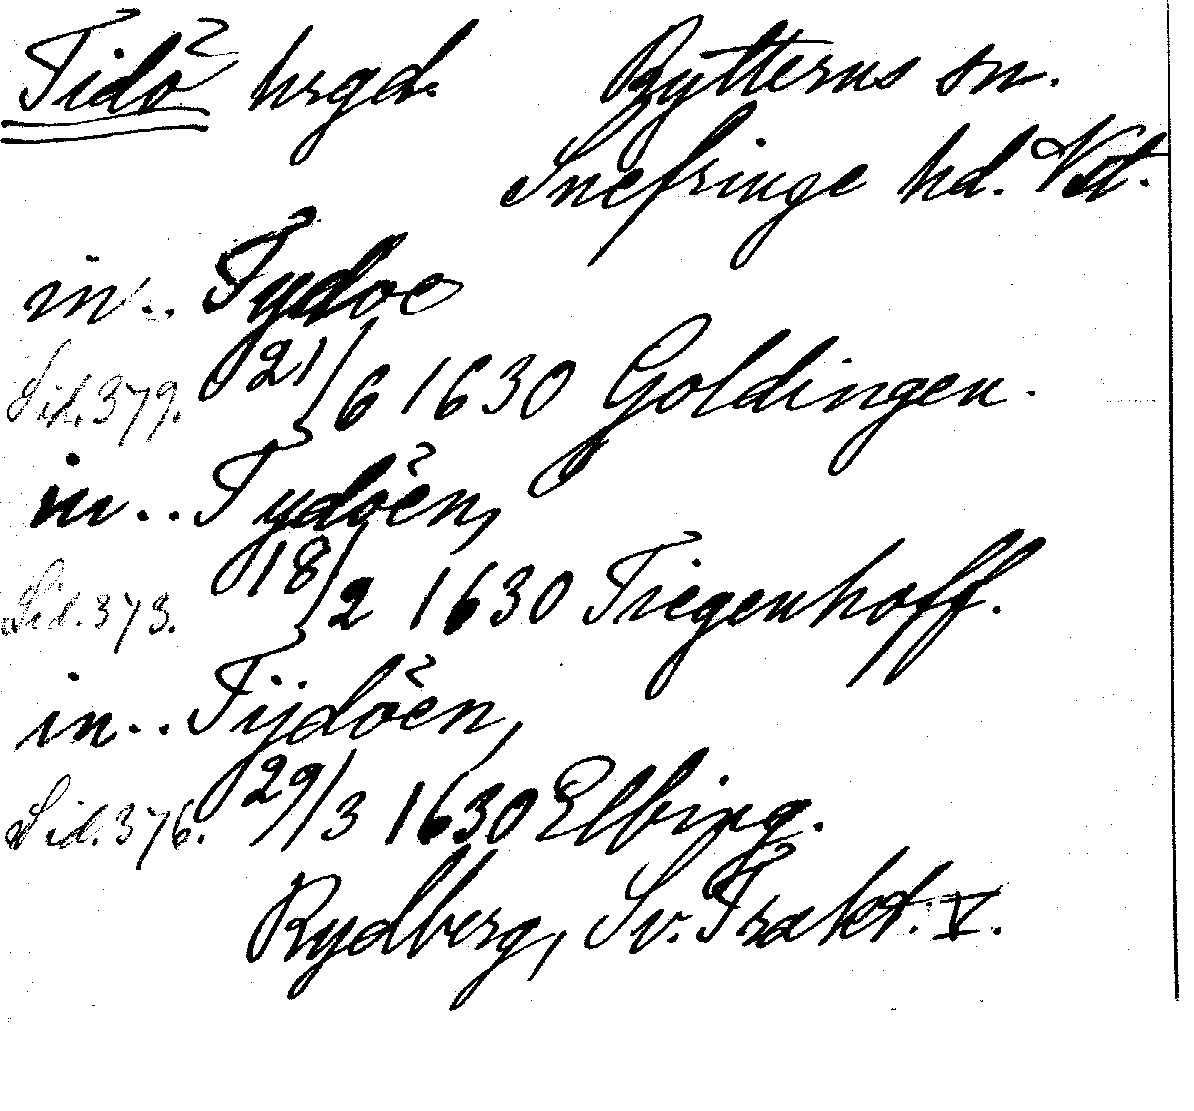 Tidö hrgd. Rytterns sn.
Snefringe hd. Vstl.
in .. Tydoe
Sid. 379. 21/6 1630 Goldingen.
in .. Tydöen,
Sid. 373. 18/2 1630 Tiegenhoff.
in .. Tijdöen,
Sid. 376. 29/3 1630 Elbing.
Rydberg, Sv. Trakt. V.